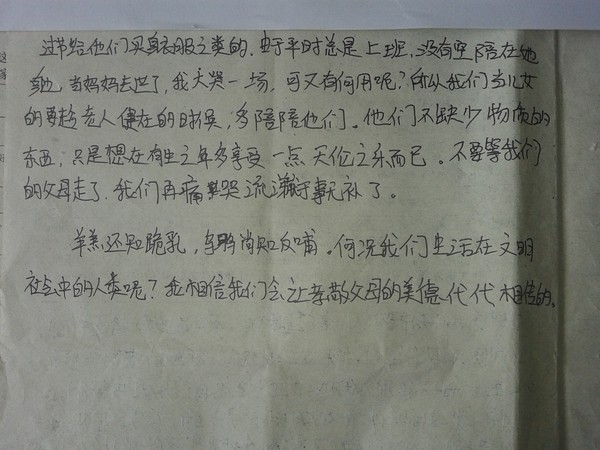 过节给他们买身衣服之类的。由于平时总是上班，没有空陪在她
身边，当妈妈去世了，我大哭一场，可又有何用呢？所以我们当儿女
的要趁老人健在的时候，多陪陪他们。他们不缺少物质上的
东西，只是想在有生之年多享受一点天伦之乐而已。不要等我们
的父母走了，我们再痛哭流涕于事无补了。
羊羔还知跪乳，乌鸦尚知反哺。何况我们生活在文明
社会中的人类呢？我相信我们会让孝敬父母的美德代代相传的。